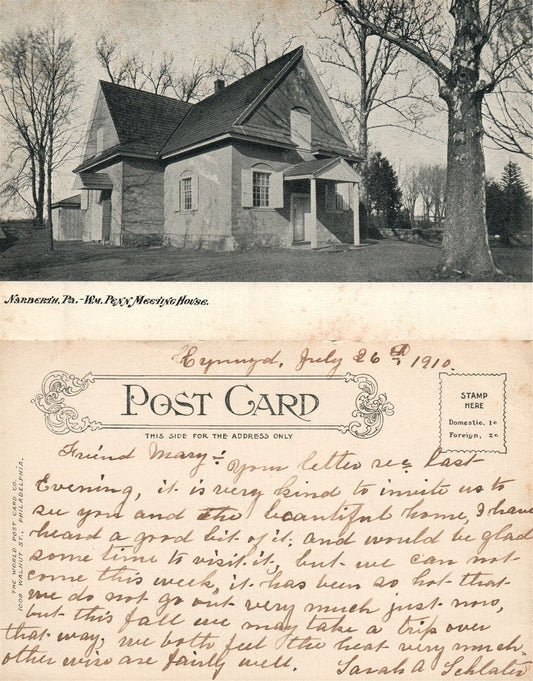 Narberth, Pa.-Wm. Penn Meeting House.
Cynwyd, July 26th, 1910.
Post Card
THIS SIDE FOR THE ADDRESS ONLY
STAMP
HERE
Domestic, 1c
Foreign, 2c
THE WORLD POST CARD CO.
1008 WALNUT ST., PHILADELPHIA.
Friend Mary:- Your letter rec last
Evening, it is very kind to invite us to
see you and the beautiful home, I have
heard a good bit of it. and would be glad
some time to visit it, but we can not
come this week, it has been so hot that
we do not go out very much just now,
but this fall we may take a trip over
that way, we both feel the heat very much.
other wise are fairly well. Sarah A Schlater